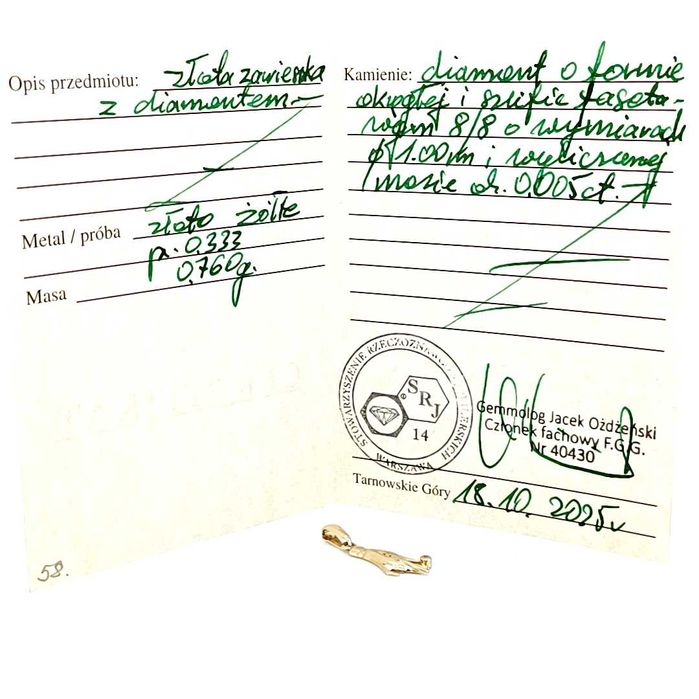 Opis przedmiotu: złota zawieszka
z diamentem
Metal / próba złoto żółte
p. 0.333
0,760g.
Masa
58.
Kamienie: diament o formie
okrągłej i szlifie faseto-
wym 8/8 o wymiarach
ø 1.00mm i wyliczonej
masie ok. 0.005ct.
STOWARZYSZENIE RZECZOZNAWCÓW JUBILERSKICH
SRJ
14
WARSZAWA
Gemmolog Jacek Ożdżeński
Członek fachowy F.G.G.
Nr 40430
Tarnowskie Góry 18.10.2025r